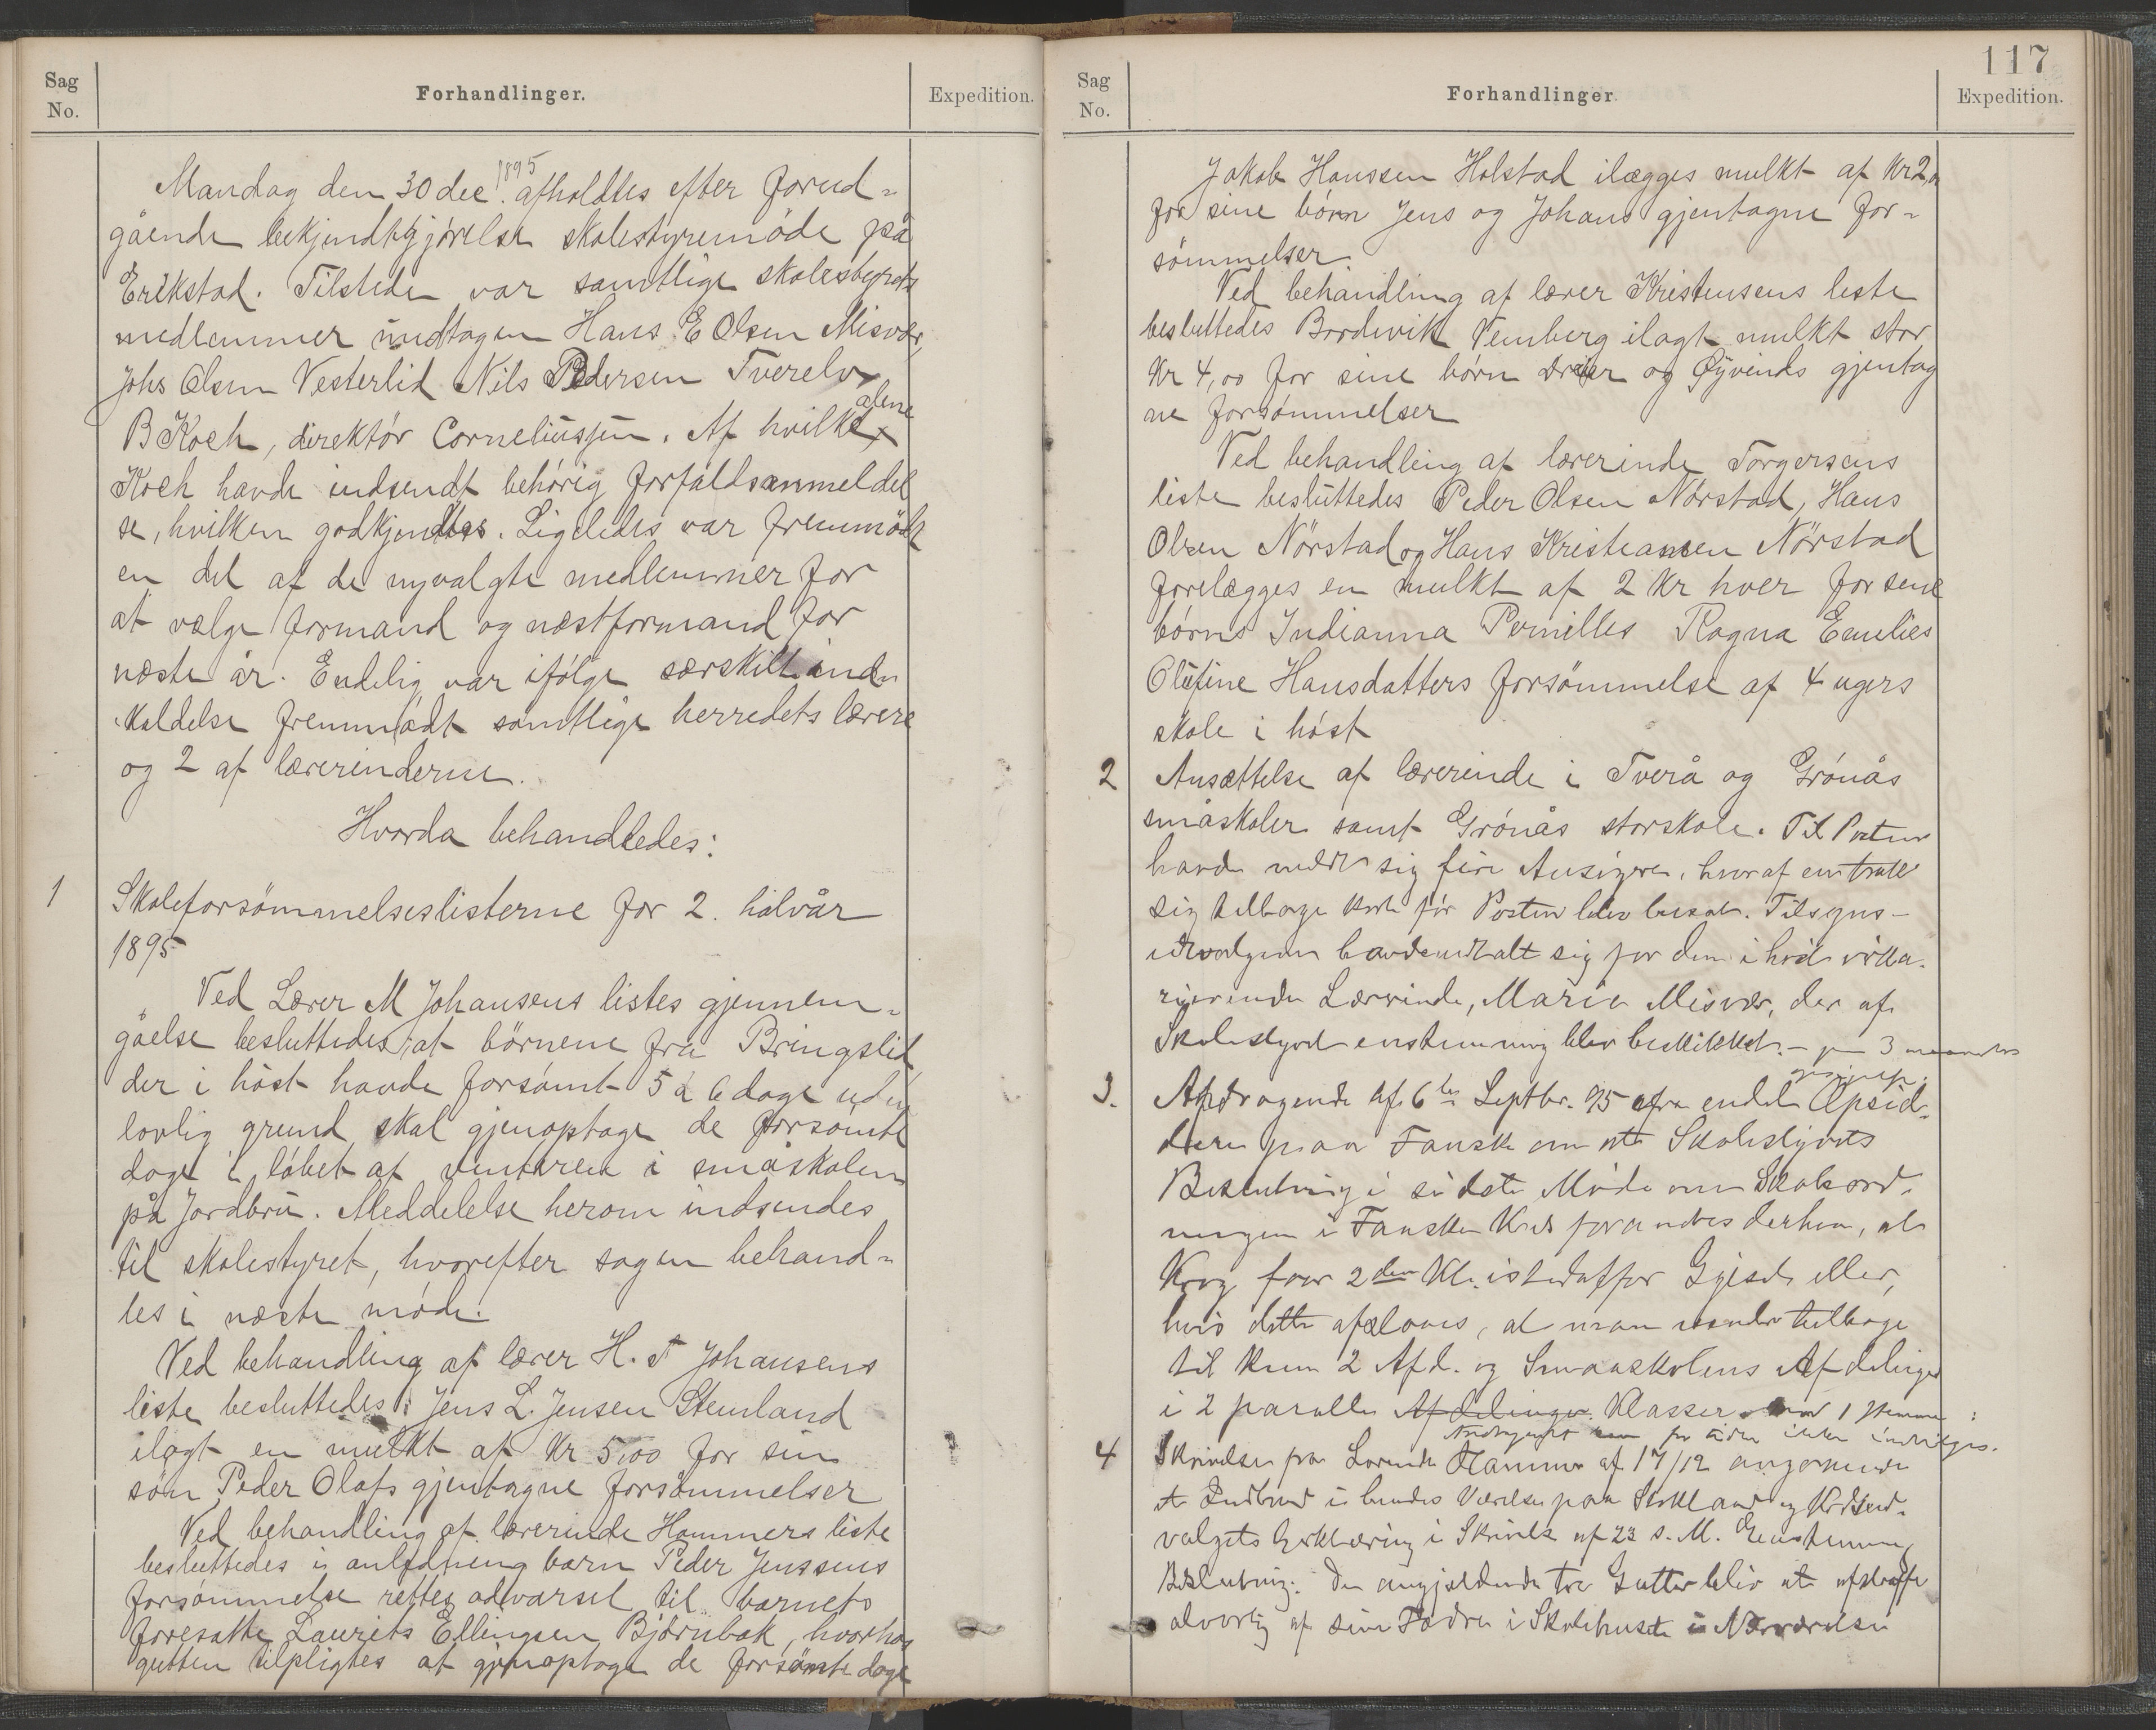 Sag
No.
Forhandlinger.
Expedition.
Mandag den 30 dec. 1895 afholdtes efter forud-
gående bekjendtgjörelse skolestyremöde på
Erikstad. Tilstede var samtlige skolestyrets
medlemmer undtagen Hans E Olsen Misvær,
Johs Olsen Vesterlid Nils Pedersen Tverelv
B Koch, direktör Corneliussen. Af hvilke alene
Koch havde indsendt behörig forfaldsanmeldel
se, hvilken godkjendtes. Ligeledes var fremmödt
en del af de nyvalgte medlemmer for
at vælge formand og næstformand for
næste år. Endelig var ifölge særskilt ind-
kaldelse fremmödt samtlige herredets lærere
og 2 af lærerinderne.
Hvorda behandledes:
1
Skoleforsömmelseslisterne for 2. halvår
1895
Ved Lærer M Johansens listes gjennem-
gåelse besluttedes at börnene fra Bringslid
der i höst havde forsömt 5 à 6 dage uden
lovlig grund skal gjenoptage de forsömte
dage i löbet af vinteren i småskolen
på Jordbru. Meddelelse herom indsendes
til skolestyret, hvorefter sagen behand-
les i næste möde.
Ved behandling af lærer H. T Johansens
liste besluttedes: Jens L. Jensen Stemland
ilagt en mulkt af Kr 5,00 for sin
sön Peder Olafs gjentagne forsömmelser
Ved behandling af lærerinde Hammers liste
besluttedes i anledning barn Peder Jenssens
forsömmelse rettes advarsel til barnets
foresatte Laurits Ellingsen Björnbak, hvorhos
gutten tilpligtes at gjenoptage de forsömte dage
117
Sag
No.
Forhandlinger
Expedition.
Jakob Hanssen Holstad ilægges mulkt af Kr 2,00
for sine börn Jens og Johans gjentagne for-
sömmelser
Ved behandling af lærer Kristensens liste
besluttedes Bordevik Vemberg ilagt mulkt stor
Kr 4,00 for sine börn og Öyvinds gjentag
ne forsömmelser
Ved behandling af lærerinde Torgersens
liste besluttedes Peder Olsen Nörstad, Hans
Olsen Nörstad og Hans Kristiansen Nörstad
forelægges en mulkt af 2 Kr hver for sine
börns Indianna Pernilles Ragna Emelies
Olufine Hansdatters forsömmelse af 4 ugers
skole i höst
2
Ansættelse af lærerinde i Tverå og Grönås
småskoler samt Grönås storskole. Til Posten
havde meldt sig fire Ansögere, hvoraf en trak
sig tilbage kort för Posten blev besat. Tilsyns-
udvalgene havde udtalt sig for den i höst vika-
rierende Lærerinde, Marie Misvær, der af
Skolestyret enstemmig blev beskikket. - 3 maaneders
opsigelse.
3.
Andragende af 6te Septbr. 95 fra endel Opsid-
dere paa Fauske om at Skolestyrets
Beslutning i sidste Möde om Skoleord-
ningen i Fauske Kreds forandres derhen, at
Krog faar 2den Kl. istedetfor Gjesdt eller,
hvis dette afslaaes, at man vender tilbage
til kun 2 Afd. og Smaaskolens Afdelinger
i 2 paralle Afdelinger Klasser. mod 1 stemme:
Andragendet kan for tiden ikke indvilges.
4
Skrivelse fra Lærerinde Hammer af 17/12 angaaende
et Indbrud i hendes Værelse paa Stokland og Kredsud-
valgets Erklæring i Skrivelse af 23 s. M. Enstemmig
Beslutning: De angjældende tre Gutter bliver at afstraffe
alvorlig af sine Fædre i Skolehuset i Nærværelse